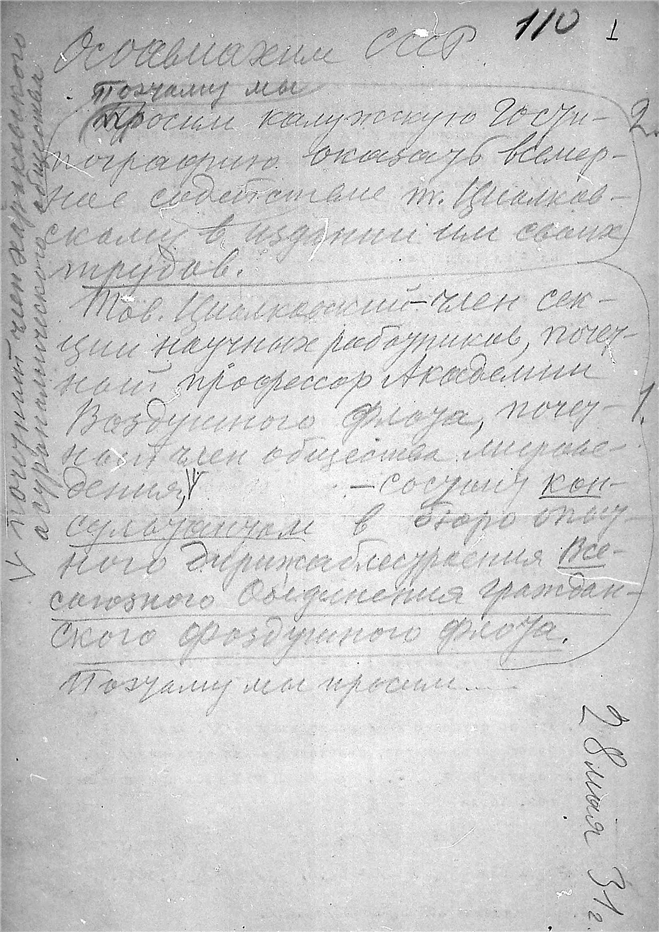 110 1
Осоавиахим СССР
Поэтому мы
Просим калужскую Гости-
пографию оказать всемер-
ное содействие т. Циолков-
скому в издании им своих
трудов.
2.
Тов. Циолковский – член сек-
ции научных работников, почет-
ный профессор Академии
Воздушного Флота, почет-
ный член общества мирове-
дения, V – состоит кон-
сультантом в бюро опыт-
ного дирижаблестроения Все-
союзного Объединения граждан-
ского воздушного флота.
1.
Поэтому мы просим....
V почетный член харьковского
астрономического общества
28 мая 31 г.